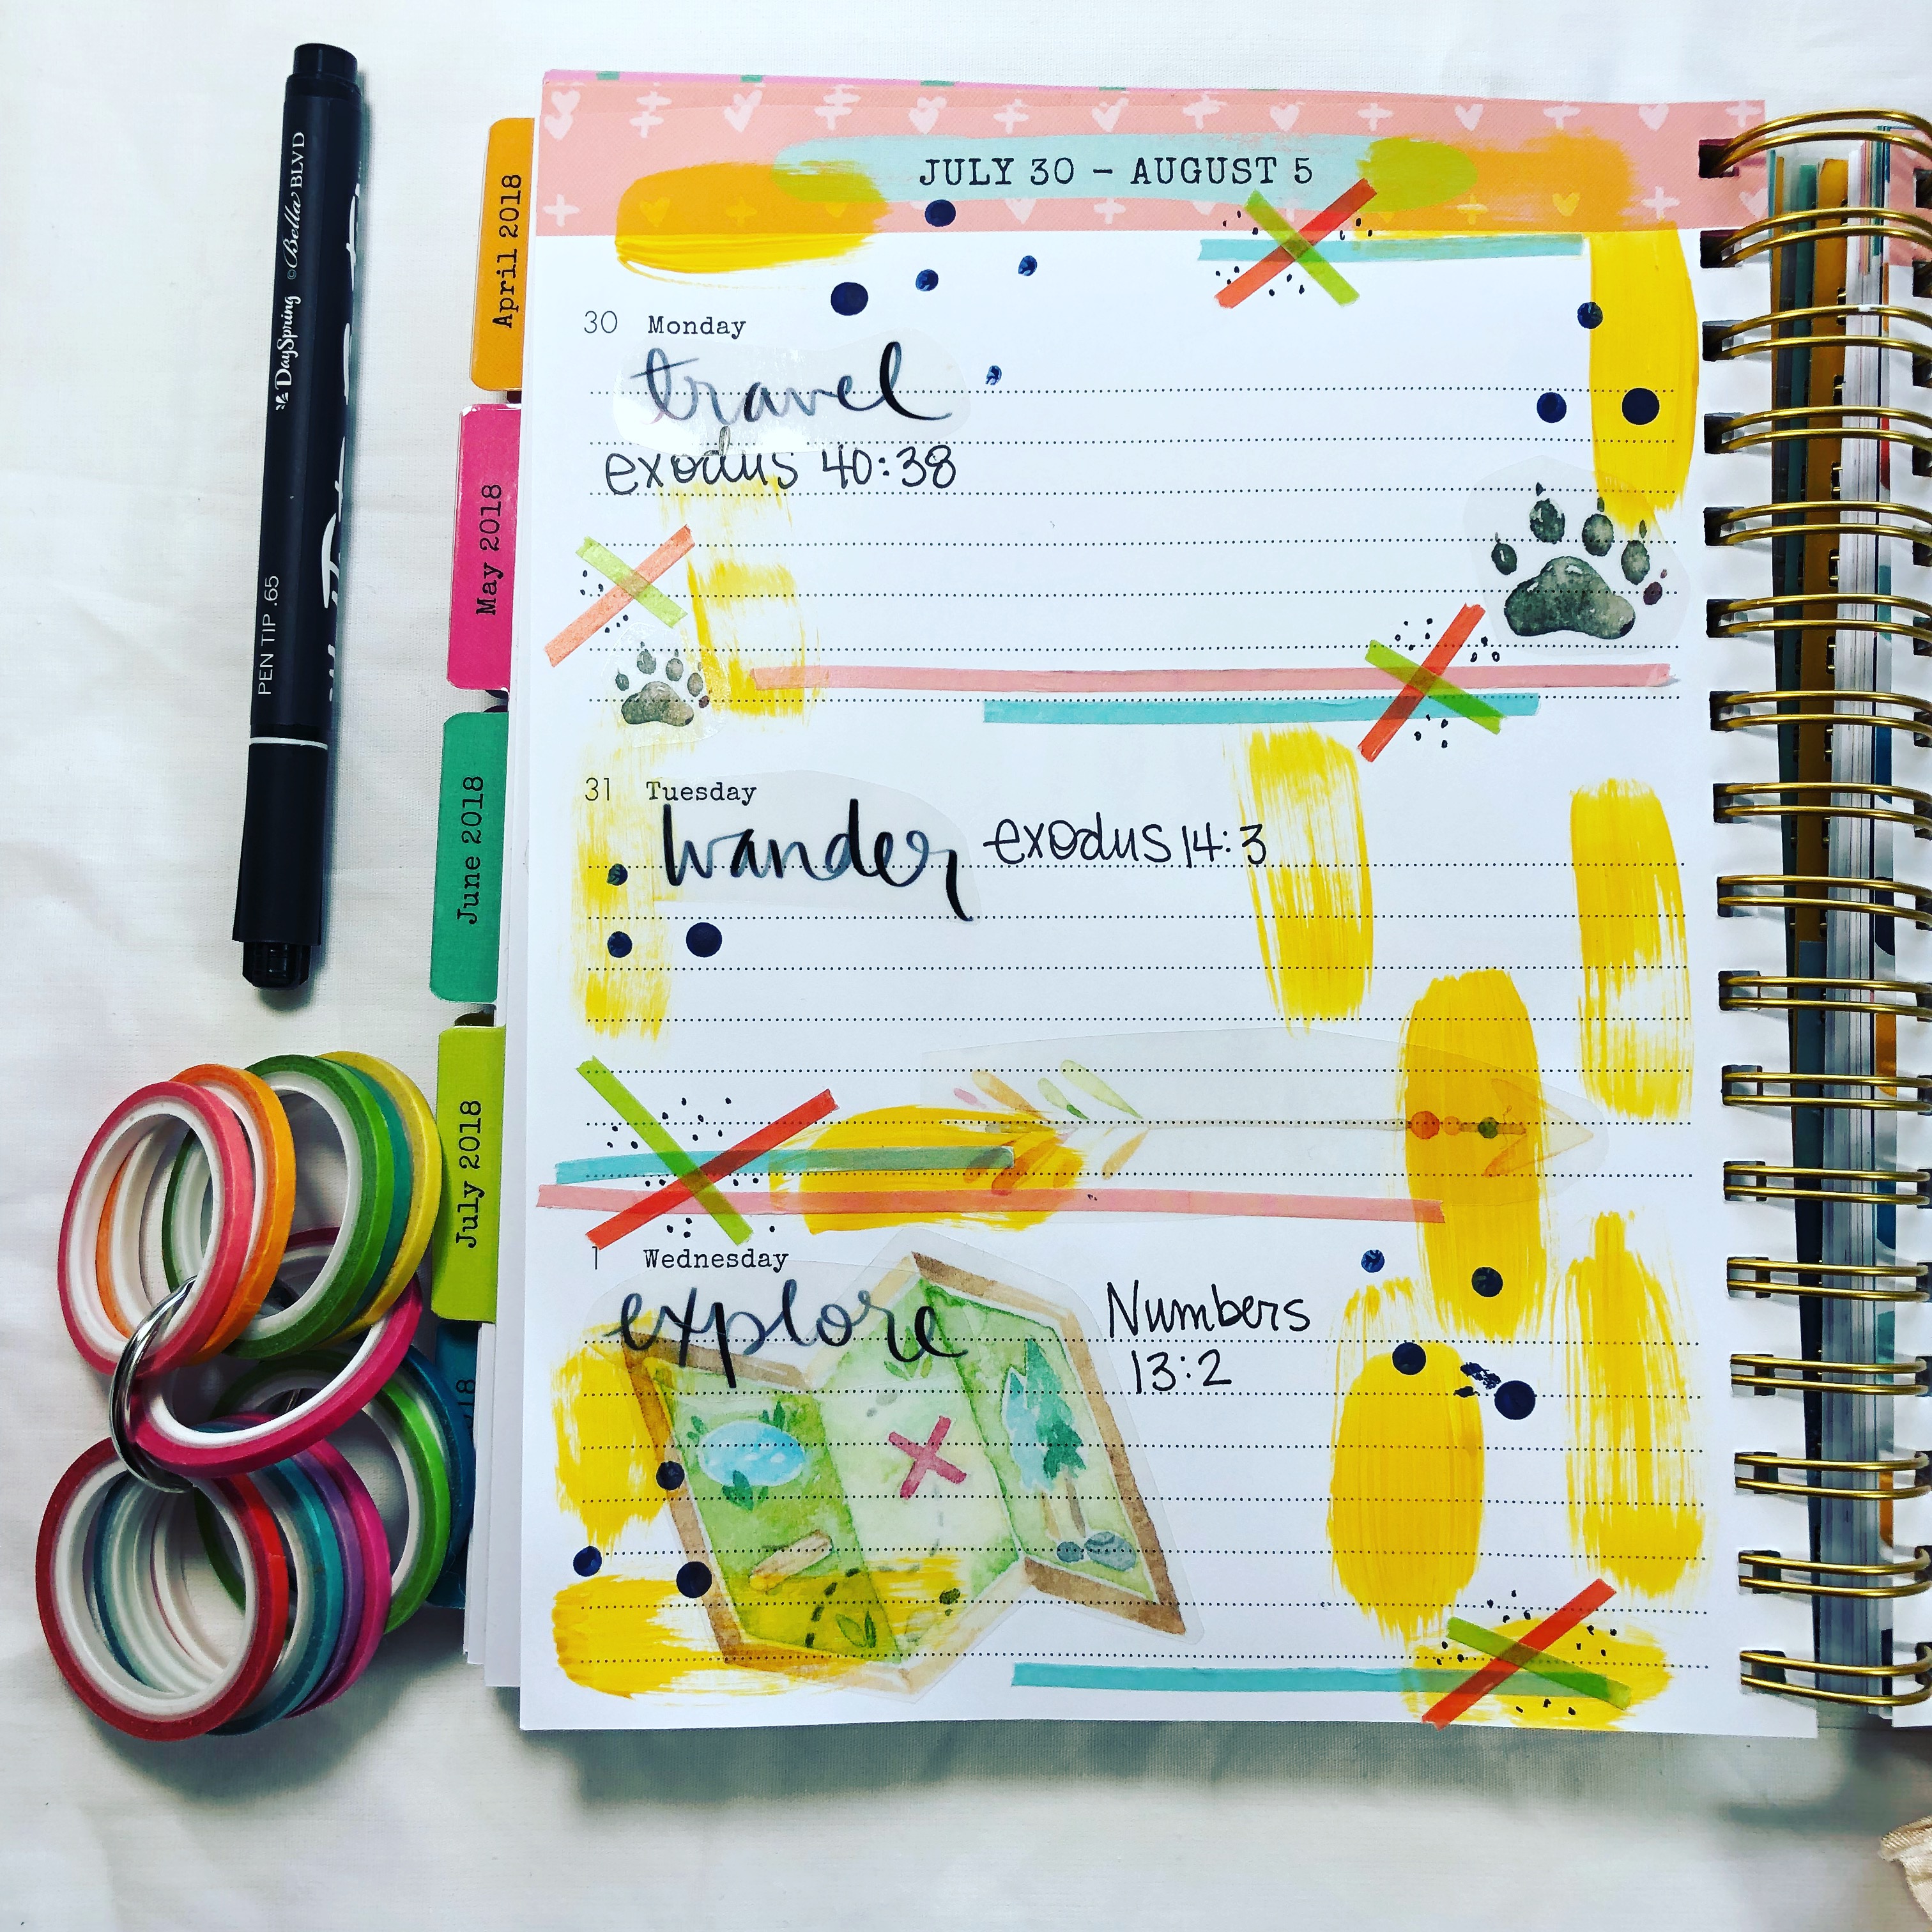 JULY 30 – AUGUST 5
30 Monday
travel
exodus 40:38
31 Tuesday
wander exodus 14:3
1 Wednesday
explore
Numbers
13:2
April 2018
May 2018
June 2018
July 2018
18
DaySpring ©Bella BLVD
PEN TIP .65